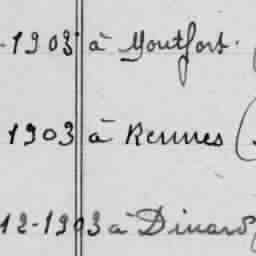 -1903 à Montfort.
1903 à Rennes (
12-1903 à Dinard